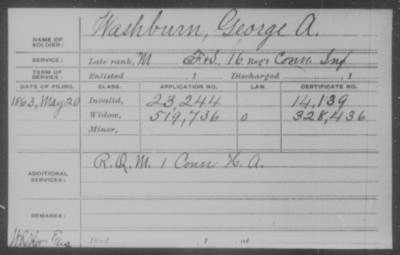 Washburn, George A.
NAME OF SOLDIER:
SERVICE: Late rank, M F&S, 16 Reg't Conn. Inf
TERM OF SERVICE: Enlisted , 1 Discharged , 1
DATE OF FILING. CLASS. APPLICATION NO. LAW. CERTIFICATE NO.
1863, May 20 Invalid, 23,244 14,139
Widow, 519,736 0 328,436
Minor,
R.Q.M. 1 Conn H.A.
ADDITIONAL SERVICES:
REMARKS:
Died , 1 , at